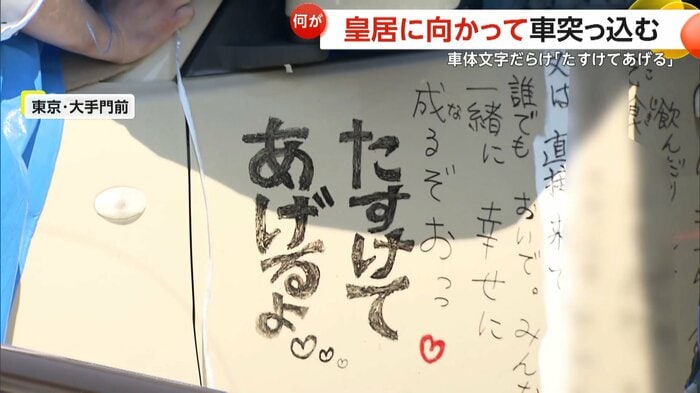 何が
皇居に向かって車突っ込む
車体文字だらけ「たすけてあげる」
東京・大手門前
飲んごり
又は 直接 来て
誰でも おいで。みんな
一緒に 幸せに
成るぞおっっ
な
たすけて
あげるよ